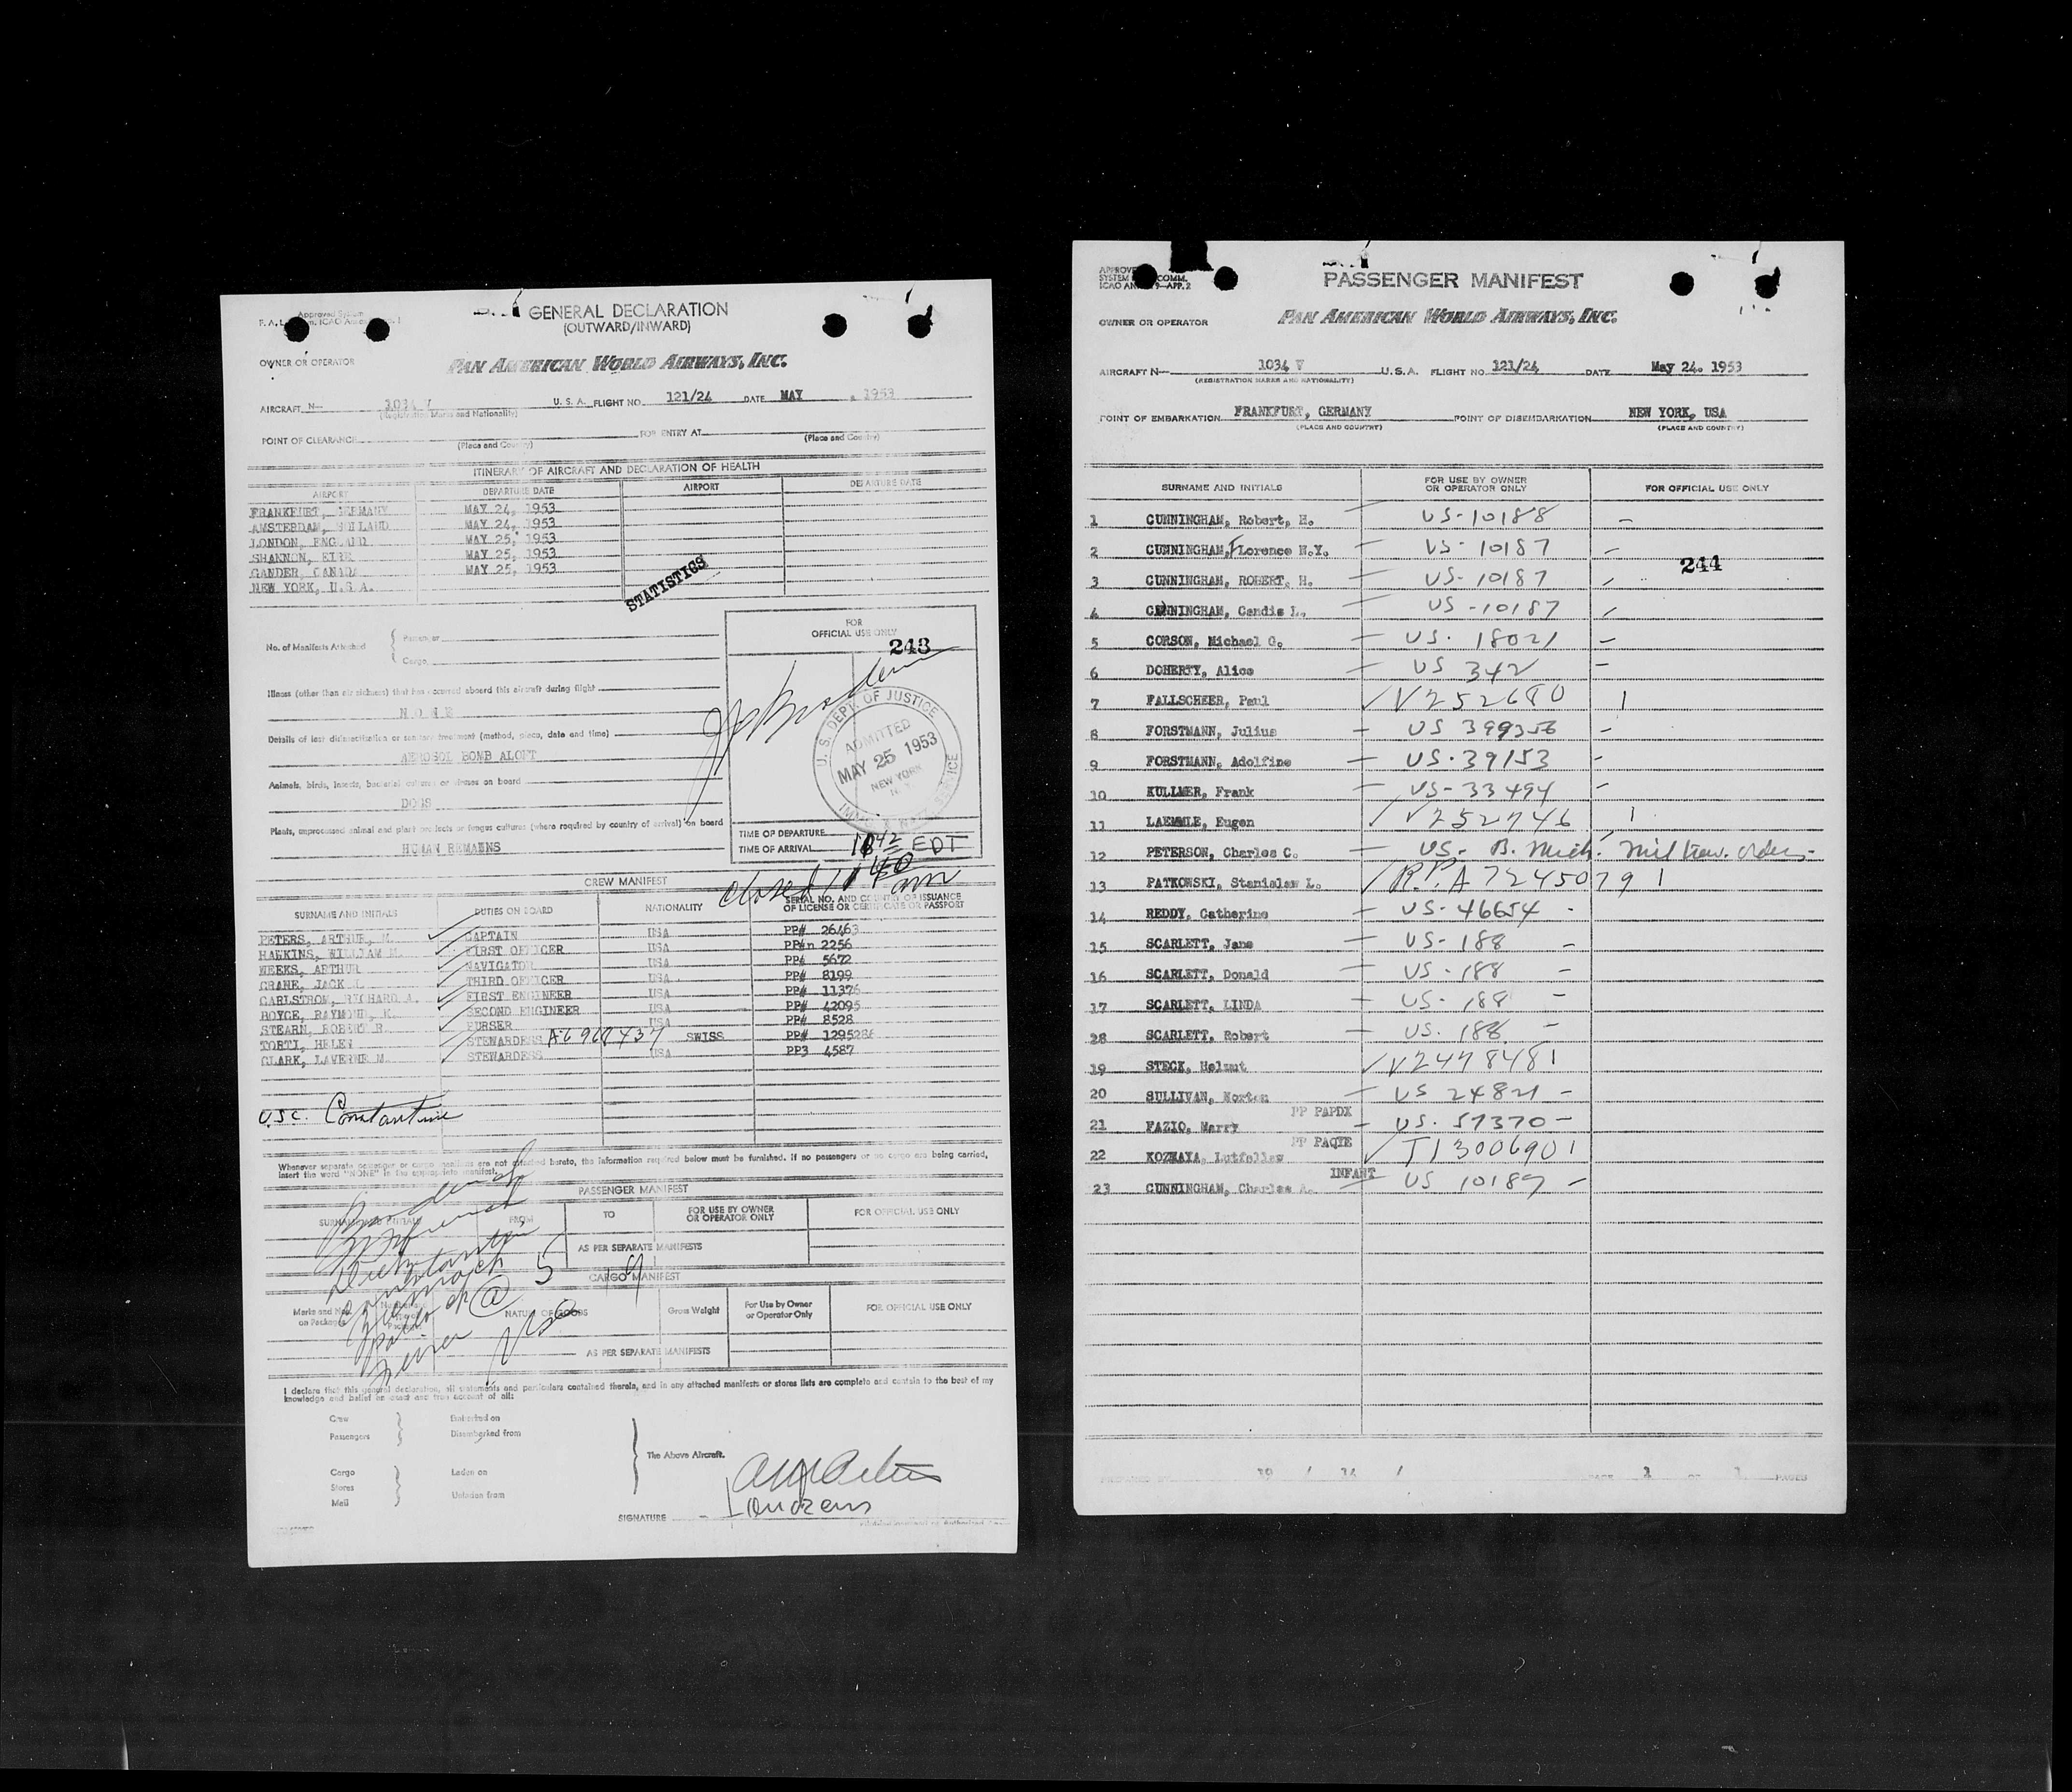 Approved System
GENERAL DECLARATION
(OUTWARD/INWARD)
OWNER OR OPERATOR
PAN AMERICAN WORLD AIRWAYS, INC.
AIRCRAFT N— 1034 V U. S. A. FLIGHT NO. 121/24 DATE MAY , 1953
(Registration Marks and Nationality)
POINT OF CLEARANCE FOR ENTRY AT
(Place and Country) (Place and Country)
ITINERARY OF AIRCRAFT AND DECLARATION OF HEALTH
AIRPORT DEPARTURE DATE AIRPORT DEPARTURE DATE
FRANKFURT, GERMANY MAY 24, 1953
AMSTERDAM, HOLLAND MAY 24, 1953
LONDON, ENGLAND MAY 25, 1953
SHANNON, EIRE MAY 25, 1953
GANDER, CANADA MAY 25, 1953
NEW YORK, U.S.A.
STATISTICS
FOR
OFFICIAL USE ONLY
243
No. of Manifests Attached
Passenger
Cargo
Illness (other than air sickness) that has occurred aboard this aircraft during flight
NONE
Details of last disinsectization or sanitary treatment (method, place, date and time)
AEROSOL BOMB ALOFT
Animals, birds, insects, bacterial cultures or viruses on board
DOGS
Plants, unprocessed animal and plant products or fungus cultures (where required by country of arrival) on board
HUMAN REMAINS
U. S. DEPT. OF JUSTICE
ADMITTED
MAY 25 1953
NEW YORK
N. Y.
TIME OF DEPARTURE
TIME OF ARRIVAL 1042 EDT
closed
CREW MANIFEST
SURNAME AND INITIALS DUTIES ON BOARD NATIONALITY SERIAL NO. AND COUNTRY OF ISSUANCE
OF LICENSE OR CERTIFICATE OR PASSPORT
PETERS, ARTHUR, M. CAPTAIN USA PP# 26463
HAWKINS, WILLIAM M. FIRST OFFICER USA PP#n 2256
WEEKS, ARTHUR NAVIGATOR USA PP# 5672
CRANE, JACK L. THIRD OFFICER USA PP# 8199
CARLSTROM, RICHARD A. FIRST ENGINEER USA PP# 11376
BOYCE, RAYMOND, K. SECOND ENGINEER USA PP# 42095
STEARN, ROBERT R. PURSER USA PP# 8528
TORTI, HELEN STEWARDESS SWISS PP# 1295286
CLARK, LAVERNE M. STEWARDESS USA PP3 4587
U.S.C. Constantine
Whenever separate passenger or cargo manifests are not attached hereto, the information required below must be furnished. If no passengers or no cargo are being carried,
insert the word "NONE" in the appropriate manifest.
PASSENGER MANIFEST
SURNAME AND INITIALS FROM TO FOR USE BY OWNER
OR OPERATOR ONLY FOR OFFICIAL USE ONLY
AS PER SEPARATE MANIFESTS
CARGO MANIFEST
Marks and Nos.
on Packages NATURE OF GOODS Gross Weight For Use by Owner
or Operator Only FOR OFFICIAL USE ONLY
AS PER SEPARATE MANIFESTS
I declare that this general declaration, all statements and particulars contained therein, and in any attached manifests or stores lists are complete and contain to the best of my
knowledge and belief an exact and true account of all:
Crew Embarked on
Passengers Disembarked from
The Above Aircraft.
Cargo Laden on
Stores
Mail Unladen from
SIGNATURE
PASSENGER MANIFEST
OWNER OR OPERATOR PAN AMERICAN WORLD AIRWAYS, INC.
AIRCRAFT N— 1034 V U.S.A. FLIGHT NO. 121/24 DATE May 24. 1953
(REGISTRATION MARKS AND NATIONALITY)
POINT OF EMBARKATION FRANKFURT, GERMANY POINT OF DISEMBARKATION NEW YORK, USA
(PLACE AND COUNTRY) (PLACE AND COUNTRY)
SURNAME AND INITIALS FOR USE BY OWNER
OR OPERATOR ONLY FOR OFFICIAL USE ONLY
1 CUNNINGHAM, Robert, H. US-10188 –
2 CUNNINGHAM, Florence N.Y. US-10187 –
244
3 CUNNINGHAM, ROBERT, H. US-10187
4 CUNNINGHAM, Candis L. US-10187
5 CORSON, Michael G. US. 18021 –
6 DOHERTY, Alice US 342 –
7 FALLSCHEER, Paul V252680 1
8 FORSTMANN, Julius US 399356 –
9 FORSTMANN, Adolfine US.39153 –
10 KULLMER, Frank US-33494 –
11 LAEMMLE, Eugen V252746 1
12 PETERSON, Charles C. US- B. Mich. Mil trav. orders
13 PATKOWSKI, Stanislaw L. R.P. A7245079 1
14 REDDY, Catherine US-46654
15 SCARLETT, Jane US-188 –
16 SCARLETT, Donald US-188 –
17 SCARLETT, LINDA US-188 –
28 SCARLETT, Robert US. 188 –
19 STECK, Helmut V247848 1
20 SULLIVAN, Morton US 24821 –
PP PAPDX
21 FAZIO, Marry US. 57370 –
PP PAQYE
22 KOZHAYA, Lutfallaw T1300690 1
INFANT
23 CUNNINGHAM, Charles A. US 10189 –